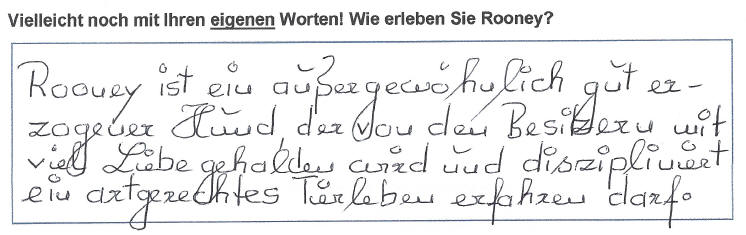 Vielleicht noch mit Ihren eigenen Worten! Wie erleben Sie Rooney?
Rooney ist ein außergewöhnlich gut er-
zogener Hund, der von den Besitzern mit
viel Liebe gehalden wird und diszipliniert
ein artgerechtes Tierleben erfahren darf.